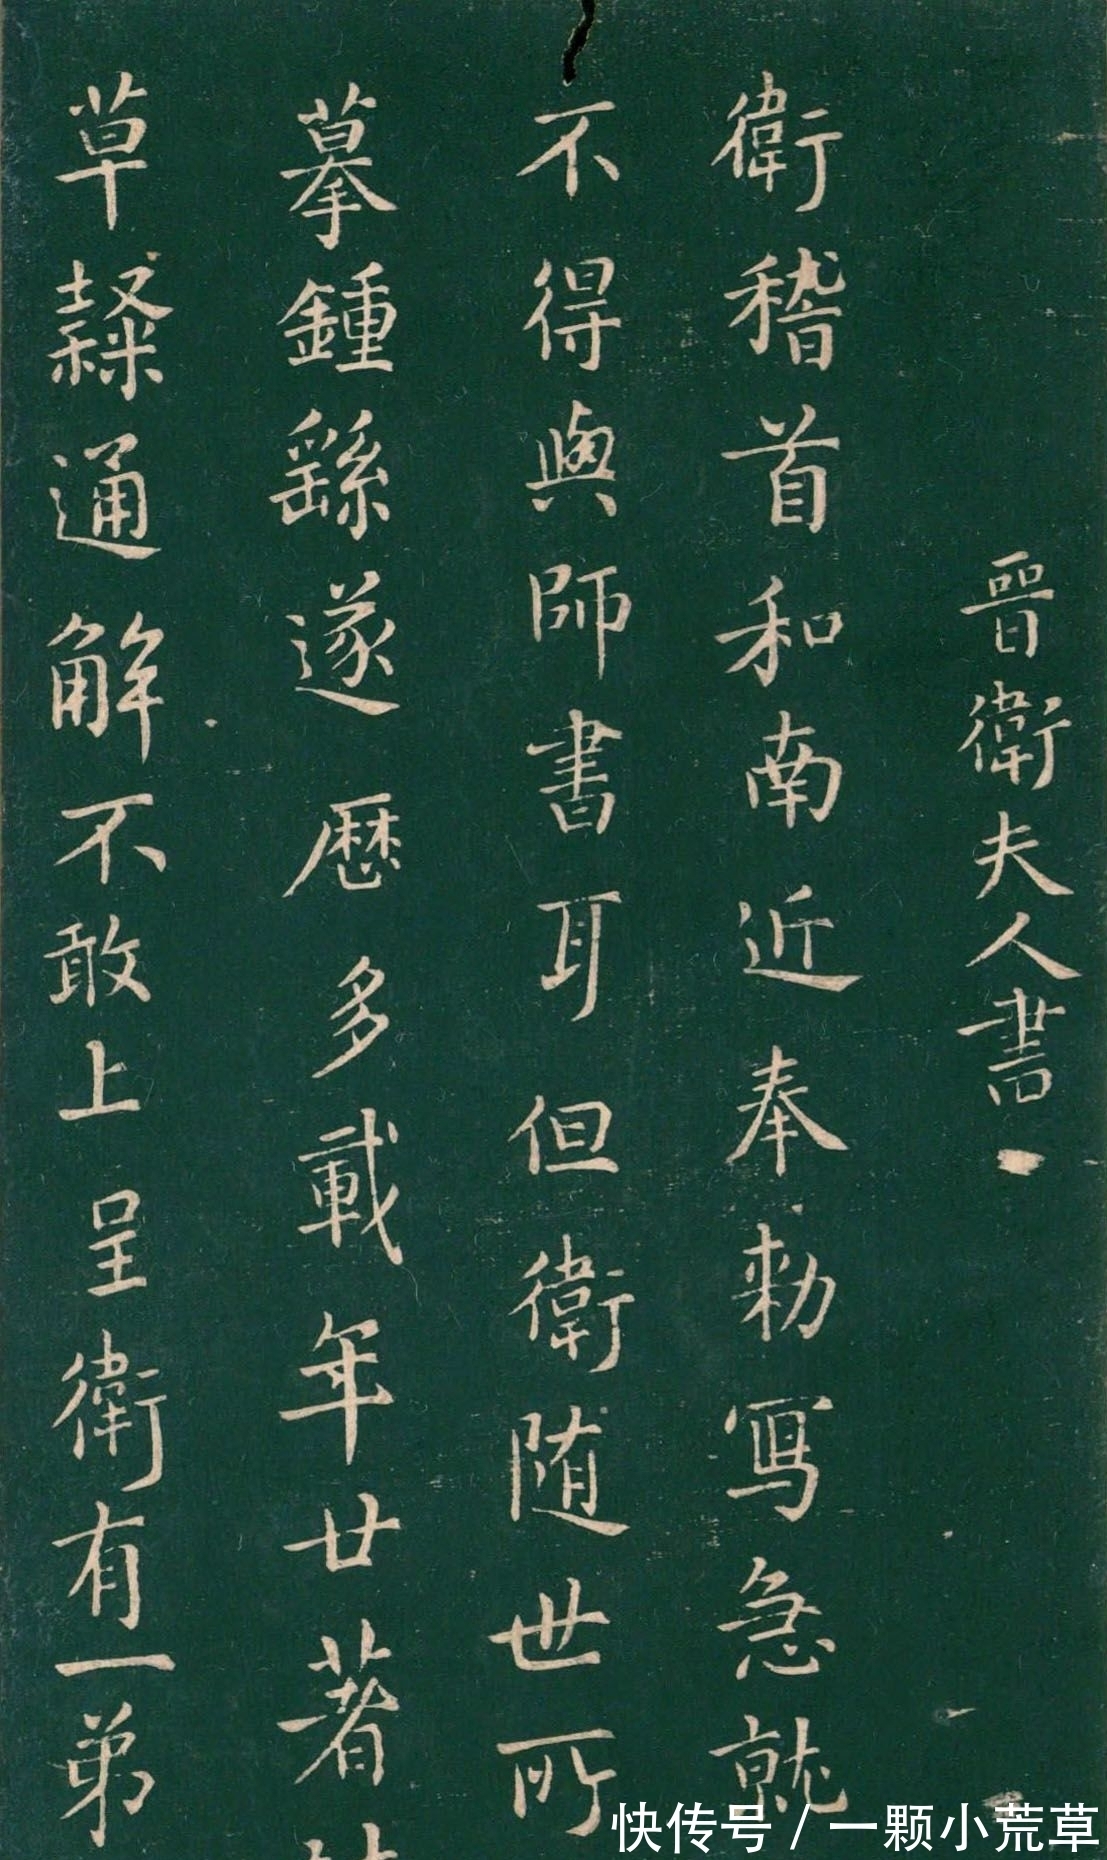 晋衛夫人書
衛稽首和南近奉勅寫急就
不得與師書耳但衛随世所
摹鍾繇遂歷多載年廿著
草隸通解不敢上呈衛有一弟
快传号 / 一颗小荒草